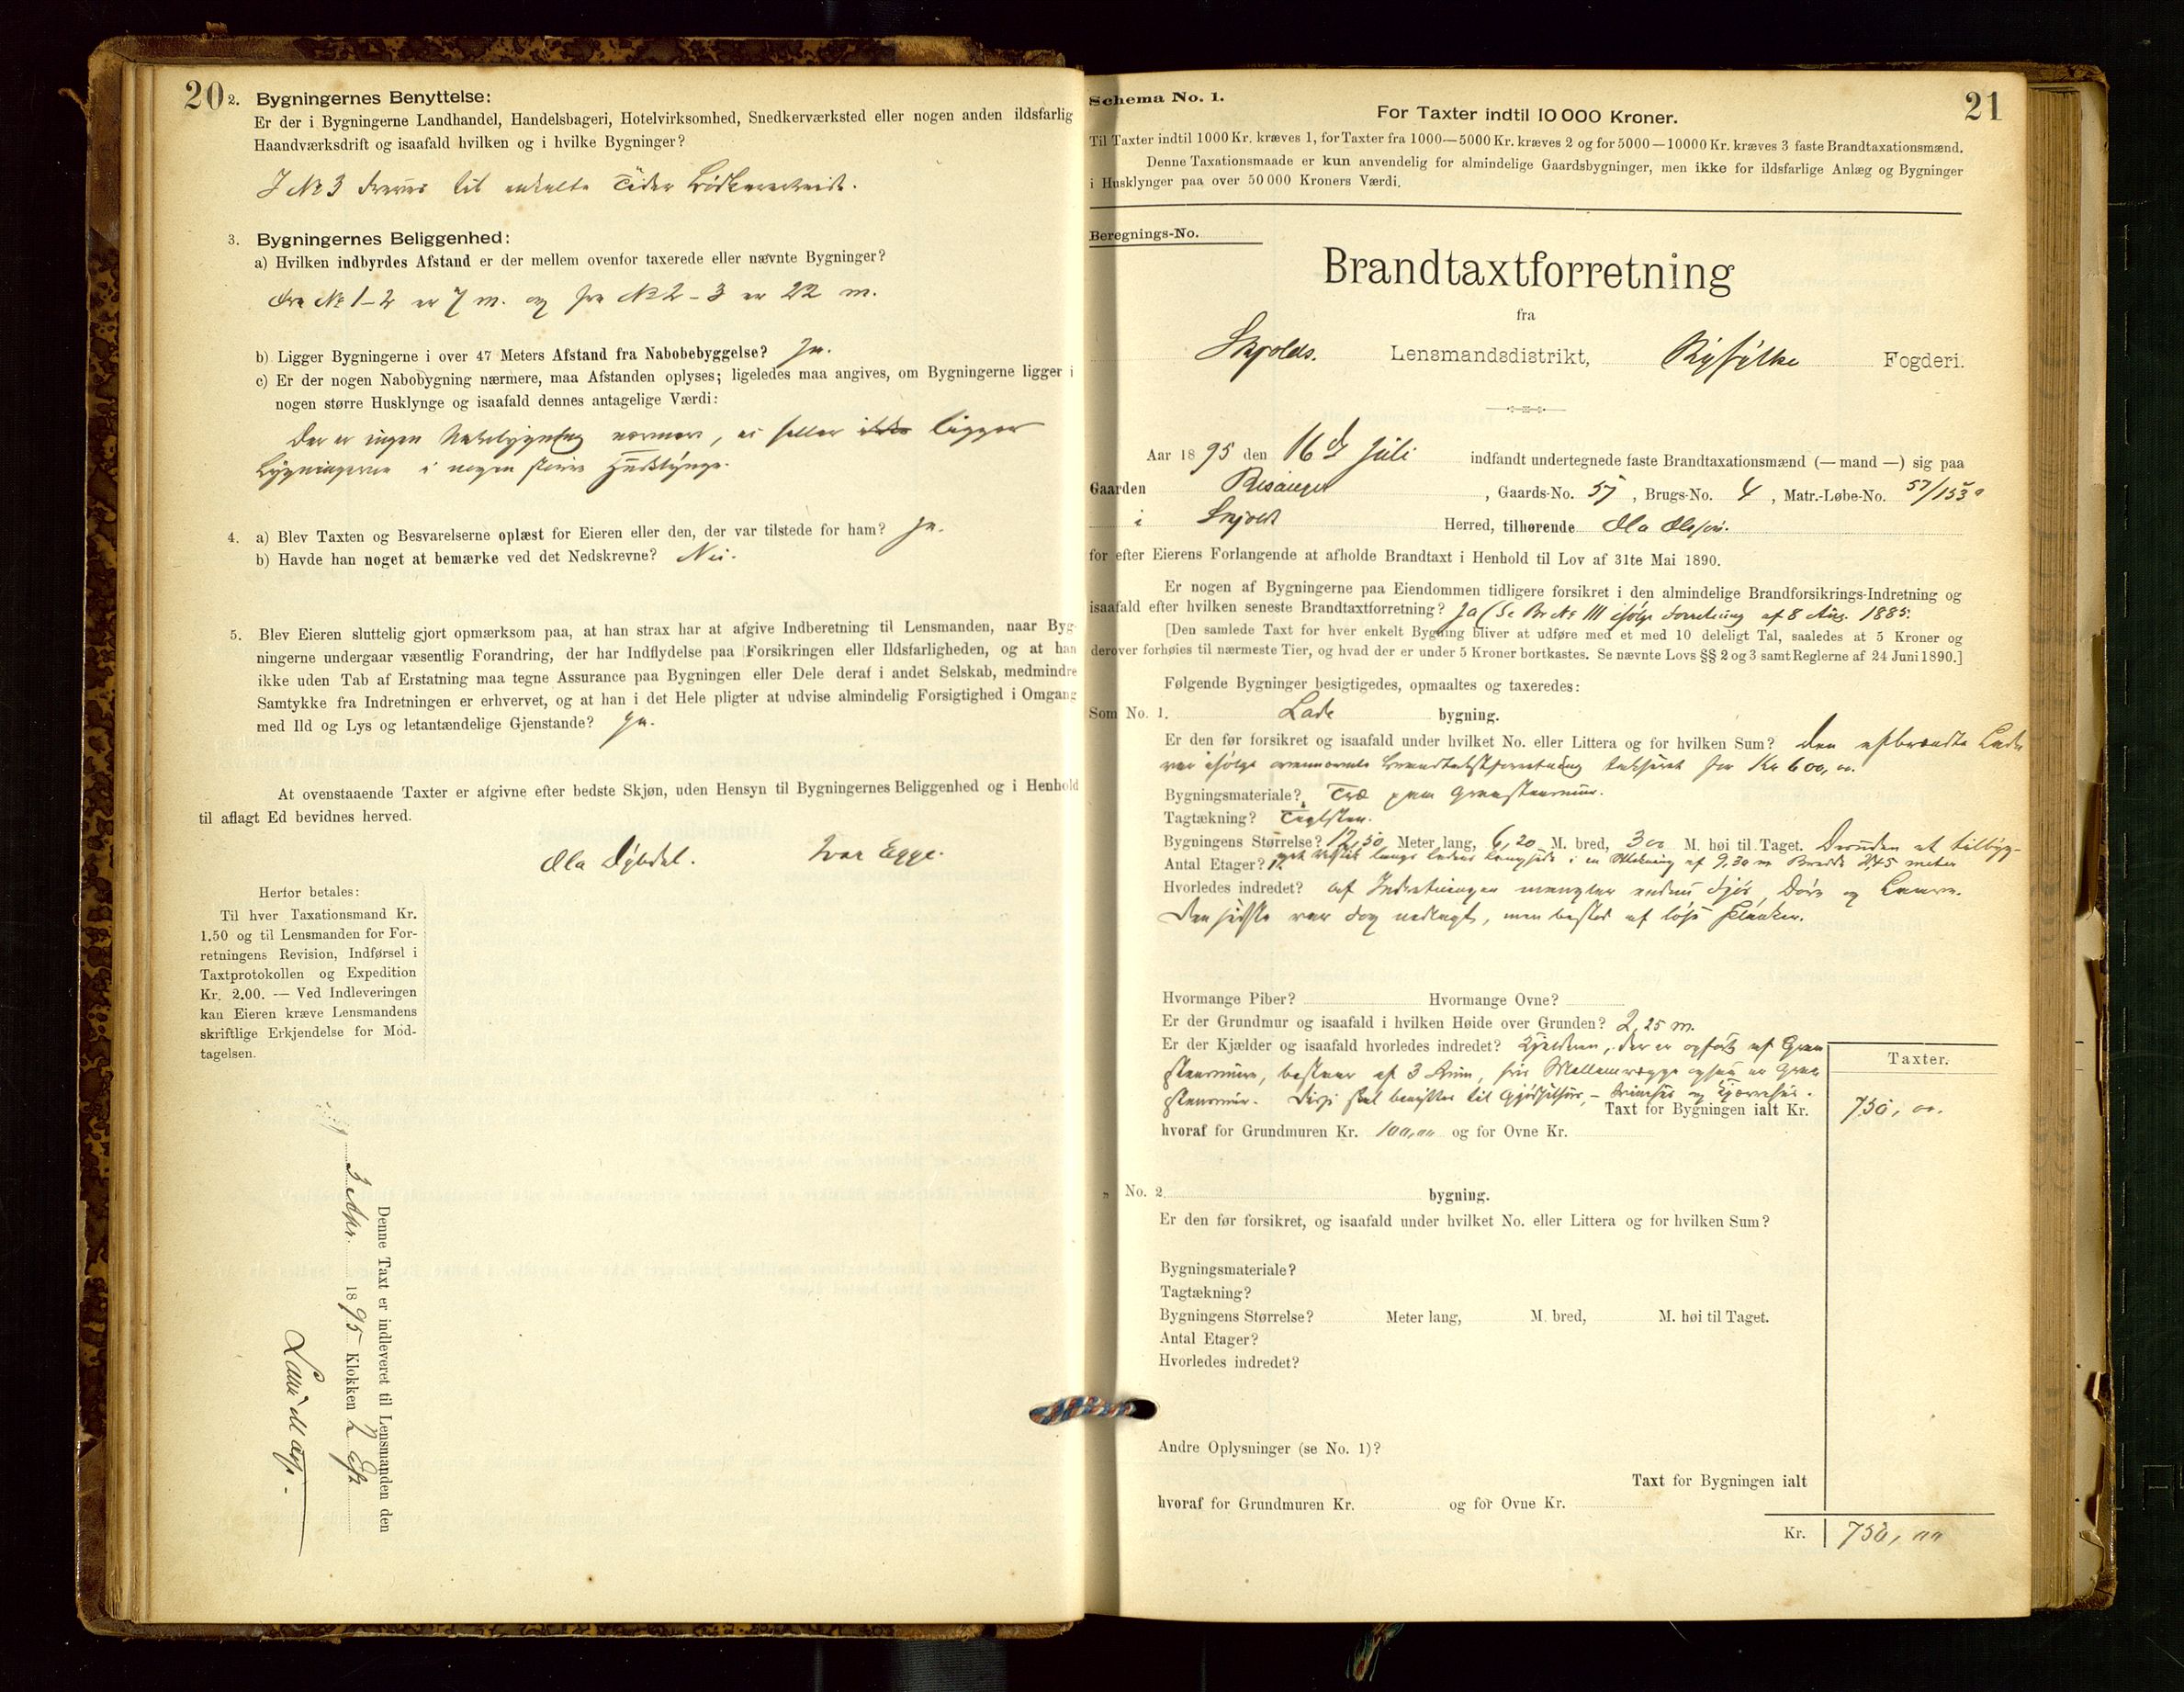 20
2. Bygningernes Benyttelse:
Er der i Bygningerne Landhandel, Handelsbageri, Hotelvirksomhed, Snedkerværksted eller nogen anden ildsfarlig
Haandværksdrift og isaafald hvilken og i hvilke Bygninger?
I No 3 drives til enkelte Tider Bødkerarbeide.
3. Bygningernes Beliggenhed:
a) Hvilken indbyrdes Afstand er der mellem ovenfor taxerede eller nævnte Bygninger?
Fra No 1-2 er 7 m. og fra No 2-3 er 22 m.
b) Ligger Bygningerne i over 47 Meters Afstand fra Nabobebyggelse? Ja.
c) Er der nogen Nabobygning nærmere, maa Afstanden oplyses; ligeledes maa angives, om Bygningerne ligger i
nogen større Husklynge og isaafald dennes antagelige Værdi:
Der er ingen Nabobygning nærmere, ei heller ligger
Bygningerne i nogen større Husklynge.
4. a) Blev Taxten og Besvarelserne oplæst for Eieren eller den, der var tilstede for ham? Ja.
b) Havde han noget at bemærke ved det Nedskrevne? Nei.
5. Blev Eieren sluttelig gjort opmærksom paa, at han strax har at afgive Indberetning til Lensmanden, naar Byg-
ningerne undergaar væsentlig Forandring, der har Indflydelse paa Forsikringen eller Ildsfarligheden, og at han
ikke uden Tab af Erstatning maa tegne Assurance paa Bygningen eller Dele deraf i andet Selskab, medmindre
Samtykke fra Indretningen er erhvervet, og at han i det Hele pligter at udvise almindelig Forsigtighed i Omgang
med Ild og Lys og letantændelige Gjenstande? Ja.
At ovenstaaende Taxter er afgivne efter bedste Skjøn, uden Hensyn til Bygningernes Beliggenhed og i Henhold
til aflagt Ed bevidnes herved.
Ola Ivar Egge.
Herfor betales:
Til hver Taxationsmand Kr.
1.50 og til Lensmanden for For-
retningens Revision, Indførsel i
Taxtprotokollen og Expedition
Kr. 2.00. — Ved Indleveringen
kan Eieren kræve Lensmandens
skriftlige Erkjendelse for Mod-
tagelsen.
Denne Taxt er indleveret til Lensmanden den
3 1895 Klokken 2
21
Schema No. 1.
For Taxter indtil 10 000 Kroner.
Til Taxter indtil 1000 Kr. kræves 1, for Taxter fra 1000—5000 Kr. kræves 2 og for 5000—10000 Kr. kræves 3 faste Brandtaxationsmænd.
Denne Taxationsmaade er kun anvendelig for almindelige Gaardsbygninger, men ikke for ildsfarlige Anlæg og Bygninger
i Husklynger paa over 50 000 Kroners Værdi.
Beregnings-No.
Brandtaxtforretning
fra
Skjolds. Lensmandsdistrikt, Ryfylke Fogderi.
Aar 1895 den 16de Juli indfandt undertegnede faste Brandtaxationsmænd (— mand —) sig paa
Gaarden Risanger, Gaards-No. 57, Brugs-No. 4, Matr.-Løbe-No. 57/153
i Skjold Herred, tilhørende Ola Olsen.
for efter Eierens Forlangende at afholde Brandtaxt i Henhold til Lov af 31te Mai 1890.
Er nogen af Bygningerne paa Eiendommen tidligere forsikret i den almindelige Brandforsikrings-Indretning og
isaafald efter hvilken seneste Brandtaxtforretning? Ja (Se Br No III ifølge Forretning af 8 Aug. 1885.
[Den samlede Taxt for hver enkelt Bygning bliver at udføre med et med 10 deleligt Tal, saaledes at 5 Kroner og
derover forhøies til nærmeste Tier, og hvad der er under 5 Kroner bortkastes. Se nævnte Lovs §§ 2 og 3 samt Reglerne af 24 Juni 1890.]
Følgende Bygninger besigtigedes, opmaaltes og taxeredes:
Som No. 1. Lade bygning.
Er den før forsikret og isaafald under hvilket No. eller Littera og for hvilken Sum? Den afbrændte Lade
var ifølge ovennævnte Brandtakstforretning taxeret for Kr 600,00.
Bygningsmateriale? Træ paa Graastensmur.
Tagtækning? Taglsten.
Bygningens Størrelse? 12,50 Meter lang, 6,20 M. bred, 3 00 M. høi til Taget. Desuden et tilbyg-
Antal Etager? 1. langs Ladens Langside i en Længde af 9,30 m Bredde 2,45 meter
Hvorledes indredet? Af Indretningen mangler endnu og
Den sidste var dog nedlagt, men bestod af løse Planker.
Hvormange Piber? Hvormange Ovne?
Er der Grundmur og isaafald i hvilken Høide over Grunden? 2,25 m.
Er der Kjælder og isaafald hvorledes indredet? Kjælderen, der er opført af Graa
stensmure, bestaar af 3 Rum, hvis Mellemvægge ogsaa er Graa
stensmur. Disse skal benyttes til
Taxter.
Taxt for Bygningen ialt Kr. 750,00.
hvoraf for Grundmuren Kr. 100,00 og for Ovne Kr.
„ No. 2. bygning.
Er den før forsikret, og isaafald under hvilket No. eller Littera og for hvilken Sum?
Bygningsmateriale?
Tagtækning?
Bygningens Størrelse? Meter lang, M. bred, M. høi til Taget.
Antal Etager?
Hvorledes indredet?
Andre Oplysninger (se No. 1)?
Taxt for Bygningen ialt
hvoraf for Grundmuren Kr. og for Ovne Kr.
Kr. 750,00